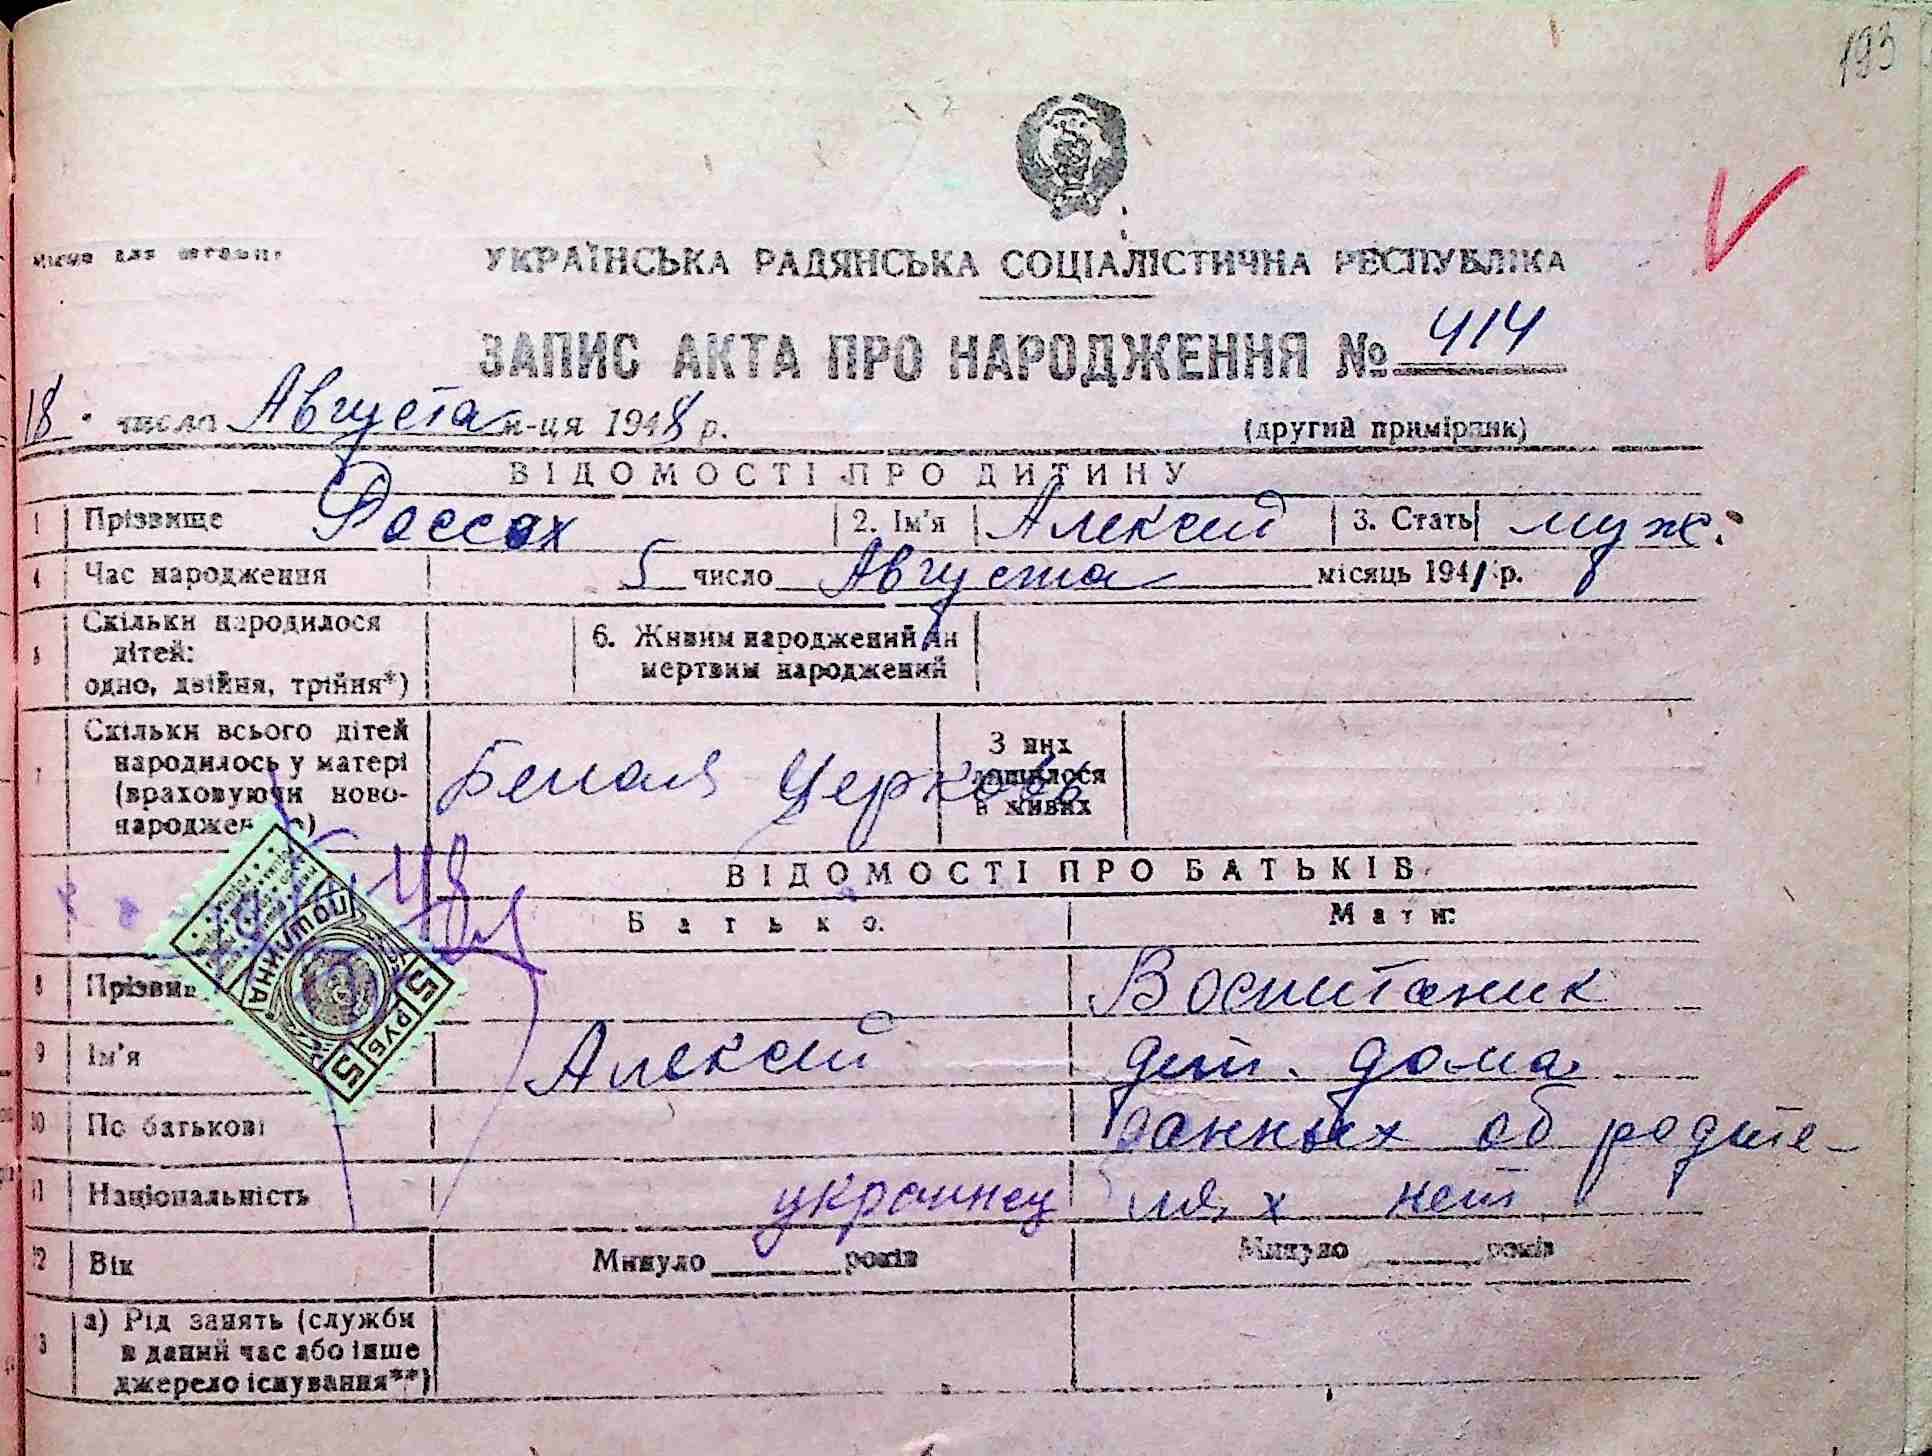 193
УКРАЇНСЬКА РАДЯНСЬКА СОЦІАЛІСТИЧНА РЕСПУБЛІКА
ЗАПИС АКТА ПРО НАРОДЖЕННЯ № 414
18. число Августа м-ця 1948 р.
(другий примірник)
ВІДОМОСТІ ПРО ДИТИНУ
1 Прізвище Россох 2. Ім'я Алексей 3. Стать муж.
4 Час народження 5 число Августа місяць 1941 р.
5 Скільки народилося дітей: одно, двійня, трійня*)
6. Живим народжений чи мертвим народжений
7 Скільки всього дітей народилось у матері (враховуючи ново-
Белая Церковь
З них лишилося в живих
ВІДОМОСТІ ПРО БАТЬКІВ
Батько:
Мати:
8 Воспитаник
9 Ім'я Алексей дет. дома
10 По батькові данных об родите-
11 Національність украинец лях нет
12 Вік Минуло років Минуло років
3 а) Рід занять (служби в даний час або інше джерело існування**)
ПОШЛИНА
5 РУБ 5